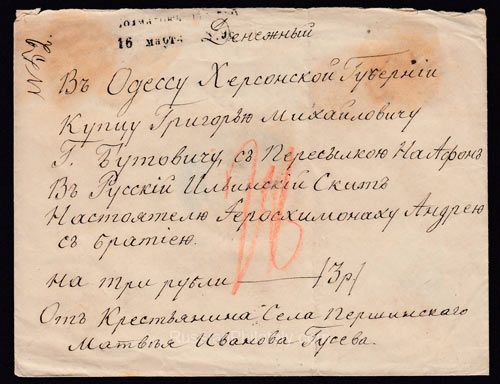 Денежный
16 марта
N 52.
Въ Одессу Херсонской Губерніи
Купцу Григорью Михайловичу
Г. Бутовичу, съ Пересылкою На Афонъ
Въ Русскій Ильинскій Скитъ
Настоятелю Іеросхимонаху Андрею
съ братіею.
на три рубли — /3р/
Отъ Крестьянина Села Першинскаго
Матвѣя Иванова Гусева.